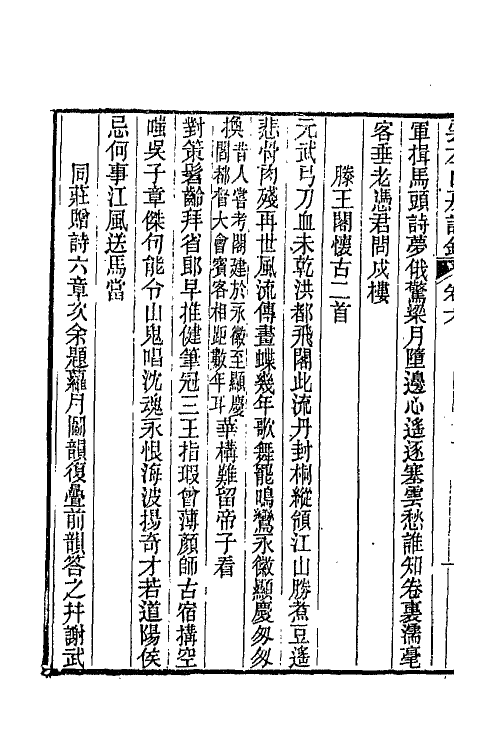 軍楫馬頭詩夢俄驚梁月墮邊心遙逐塞雲愁誰知卷裏濡毫
客垂老憑君問戍樓
滕王閣懷古二首
元武弓刀血未乾洪都飛閣此流丹封桐縱領江山勝煮豆遙
悲骨肉殘再世風流傳畫蝶幾年歌舞罷鳴鸞永徽顯慶匆匆
換昔人嘗考閣建於永徽至顯慶
間都督大會賓客相距數年耳華構難留帝子看
對策髫齡拜省郎早推健筆冠三王指瑕曾薄顏師古宿搆空
嗤吳子章傑句能令山鬼唱沈魂永恨海波揚奇才若道陽侯
忌何事江風送馬當
同莊贈詩六章次余題蘿月關韻復疊前韻答之幷謝武